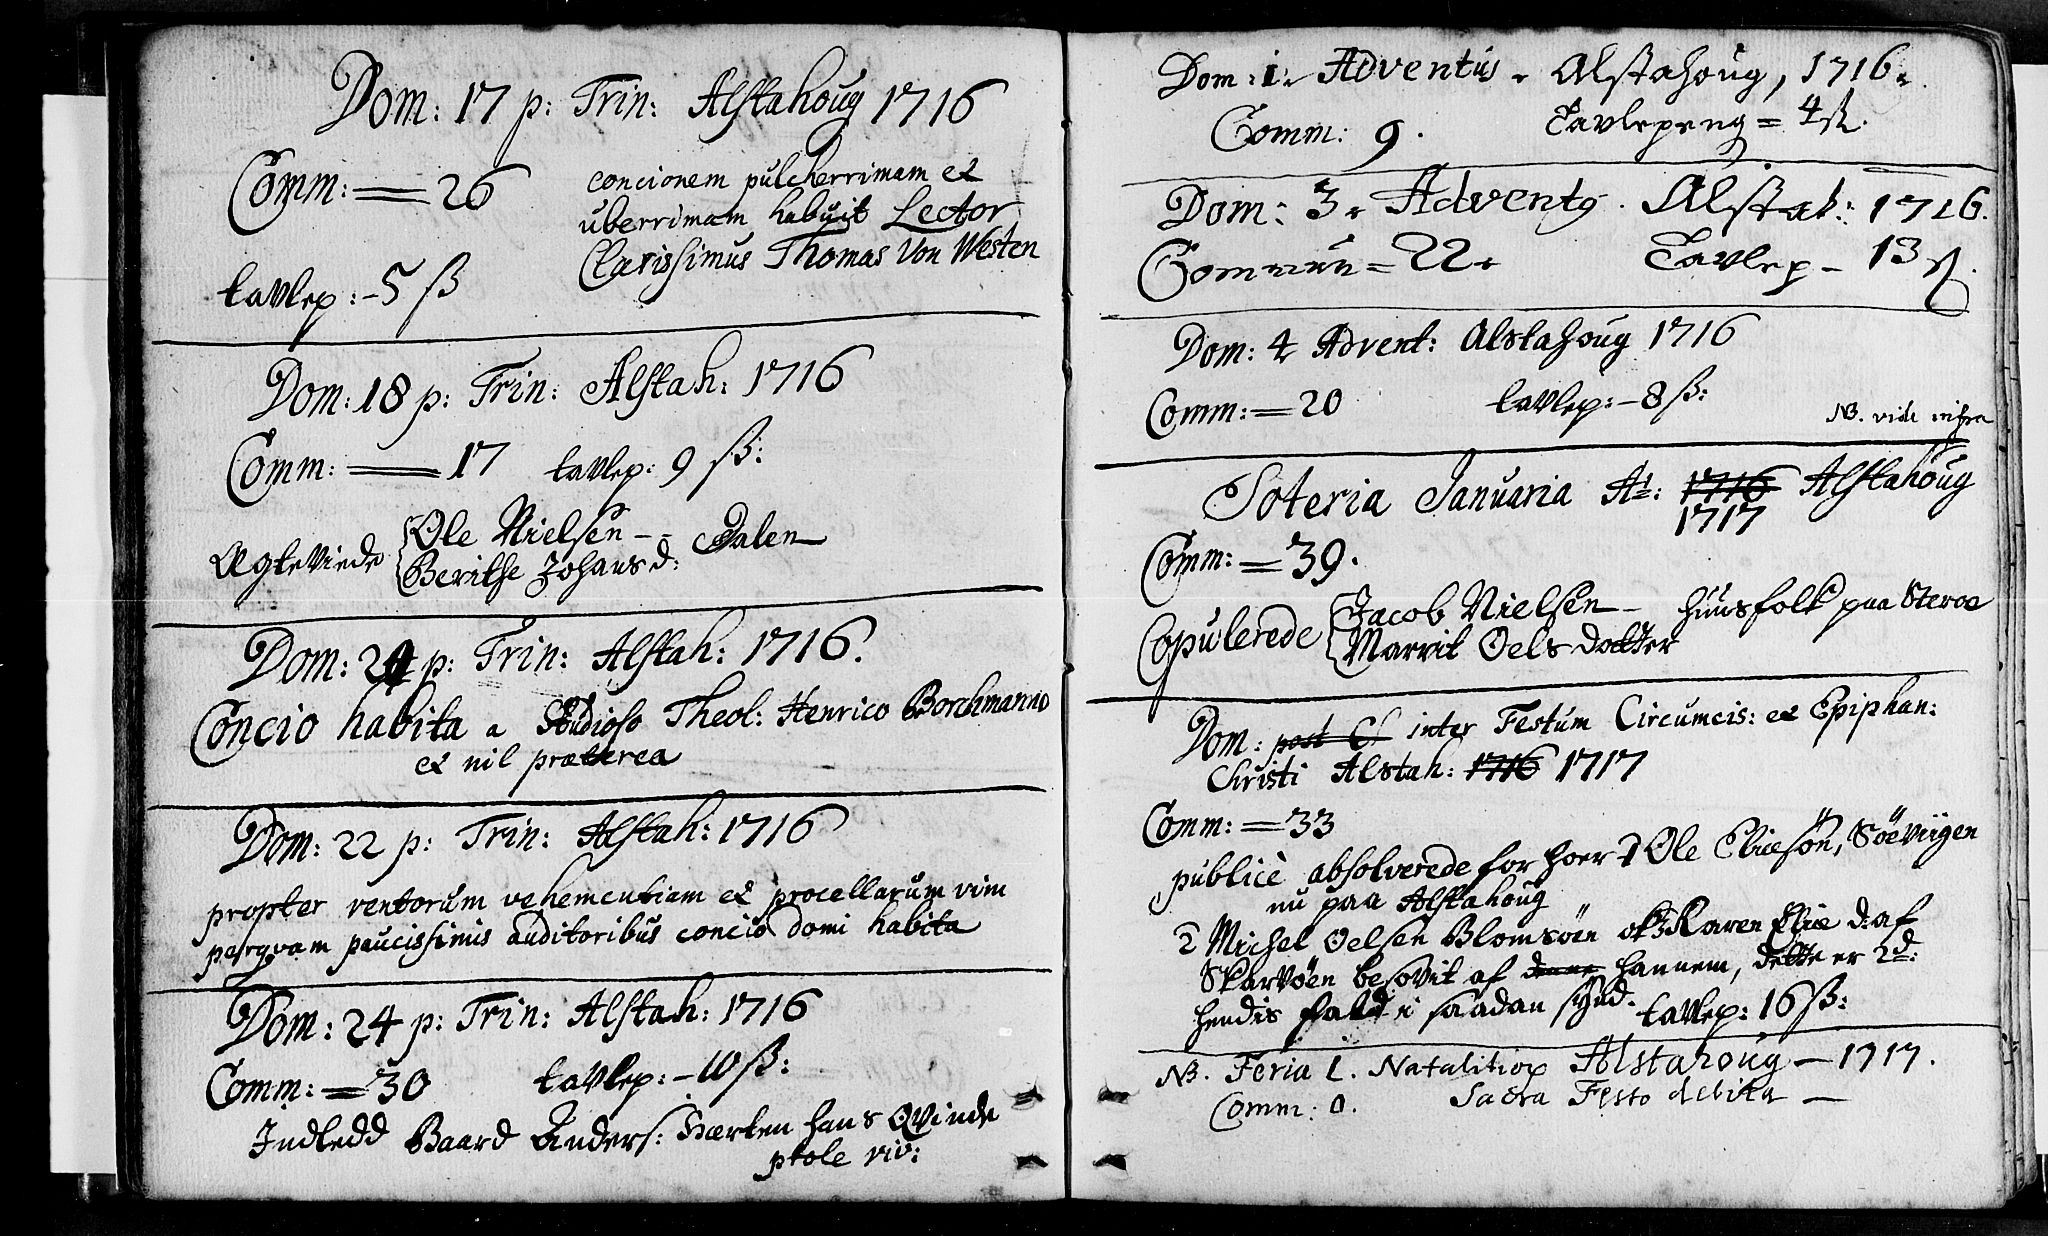 Dom: 17 p: Trin: Alstahoug 1716
Comm: = 26
concionem pulcherrimam et
uberrimam habuit Lector
Clarissimus Thomas Von Westen
tavlep: - 5 ß
Dom: 18 p: Trin: Alstah: 1716
Comm: = 17 tavlep: 9 ß:
Ægteviede { Ole Nielsen - - Dalen
Berithe Johansd:
Dom: 20 p: Trin: Alstah: 1716.
Concio habita a Studioso Theol: Henrico Borchmanno
et nil præterea
Dom: 22 p: Trin: Alstah: 1716
propter ventorum vehementiam et procellarum vim
perqvam paucissimis auditoribus concio domi habita
Dom: 24 p: Trin: Alstah: 1716
Comm: = 30 tavlep: - 10 ß:
Indledd Baard Anders: hans Qvinde
Dom: 1. Adventus. Alstahoug, 1716.
Comm: 9. Tavlepeng = 4 ß.
Dom: 3. Advent9. Alstah: 1716.
Commun = 22. Tavlep - 13 ß.
Dom: 4 Advent: Alstahoug 1716
Comm: = 20 tavlep: - 8 ß:
NB. vide infra
Soteria Januaria A1: 1716 Alstahoug
1717
Comm: = 39.
Copulerede { Jacob Nielsen - huusfolk paa Steroe
Marrit Oels dotter
Dom: post C inter Festum Circumcis: et Epiphan:
Christi Alstah: 1716 1717
Comm: = 33
publicè absolverede for hoer 1 Ole Eliesön, Söeviigen
nu paa Alstahoug
2 Michel Oelsen Blomsöen ok 3 Karen Elie d: af
Skarvöen besovit af denne hannem, dette er 2d:
hendis fald i saadan synd. tavlep: 16 ß:
NB. Feria 1. Natalitior Alstahoug - 1717.
Comm: 0. Sacra Festo debita -